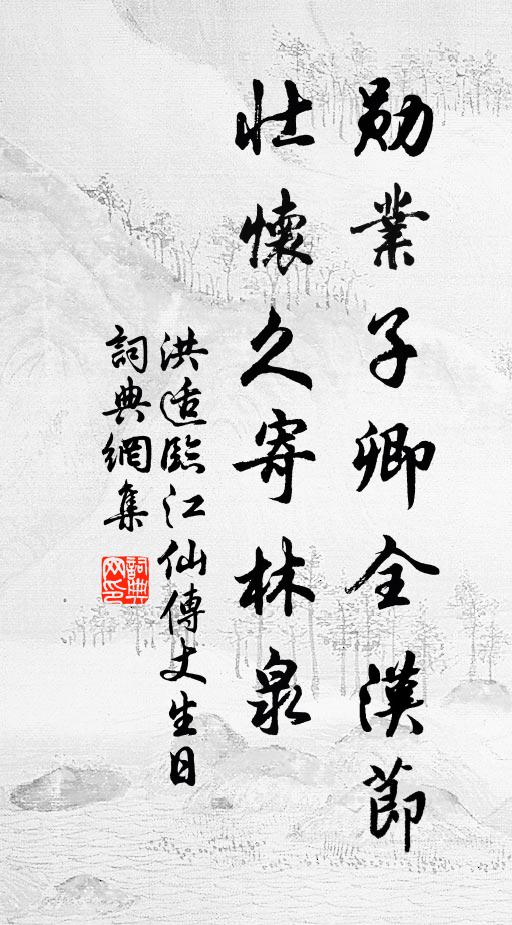 勛業子卿全漢節
壯懷久寄林泉
洪适臨江仙傅丈生日
詞典網集
詞典網印